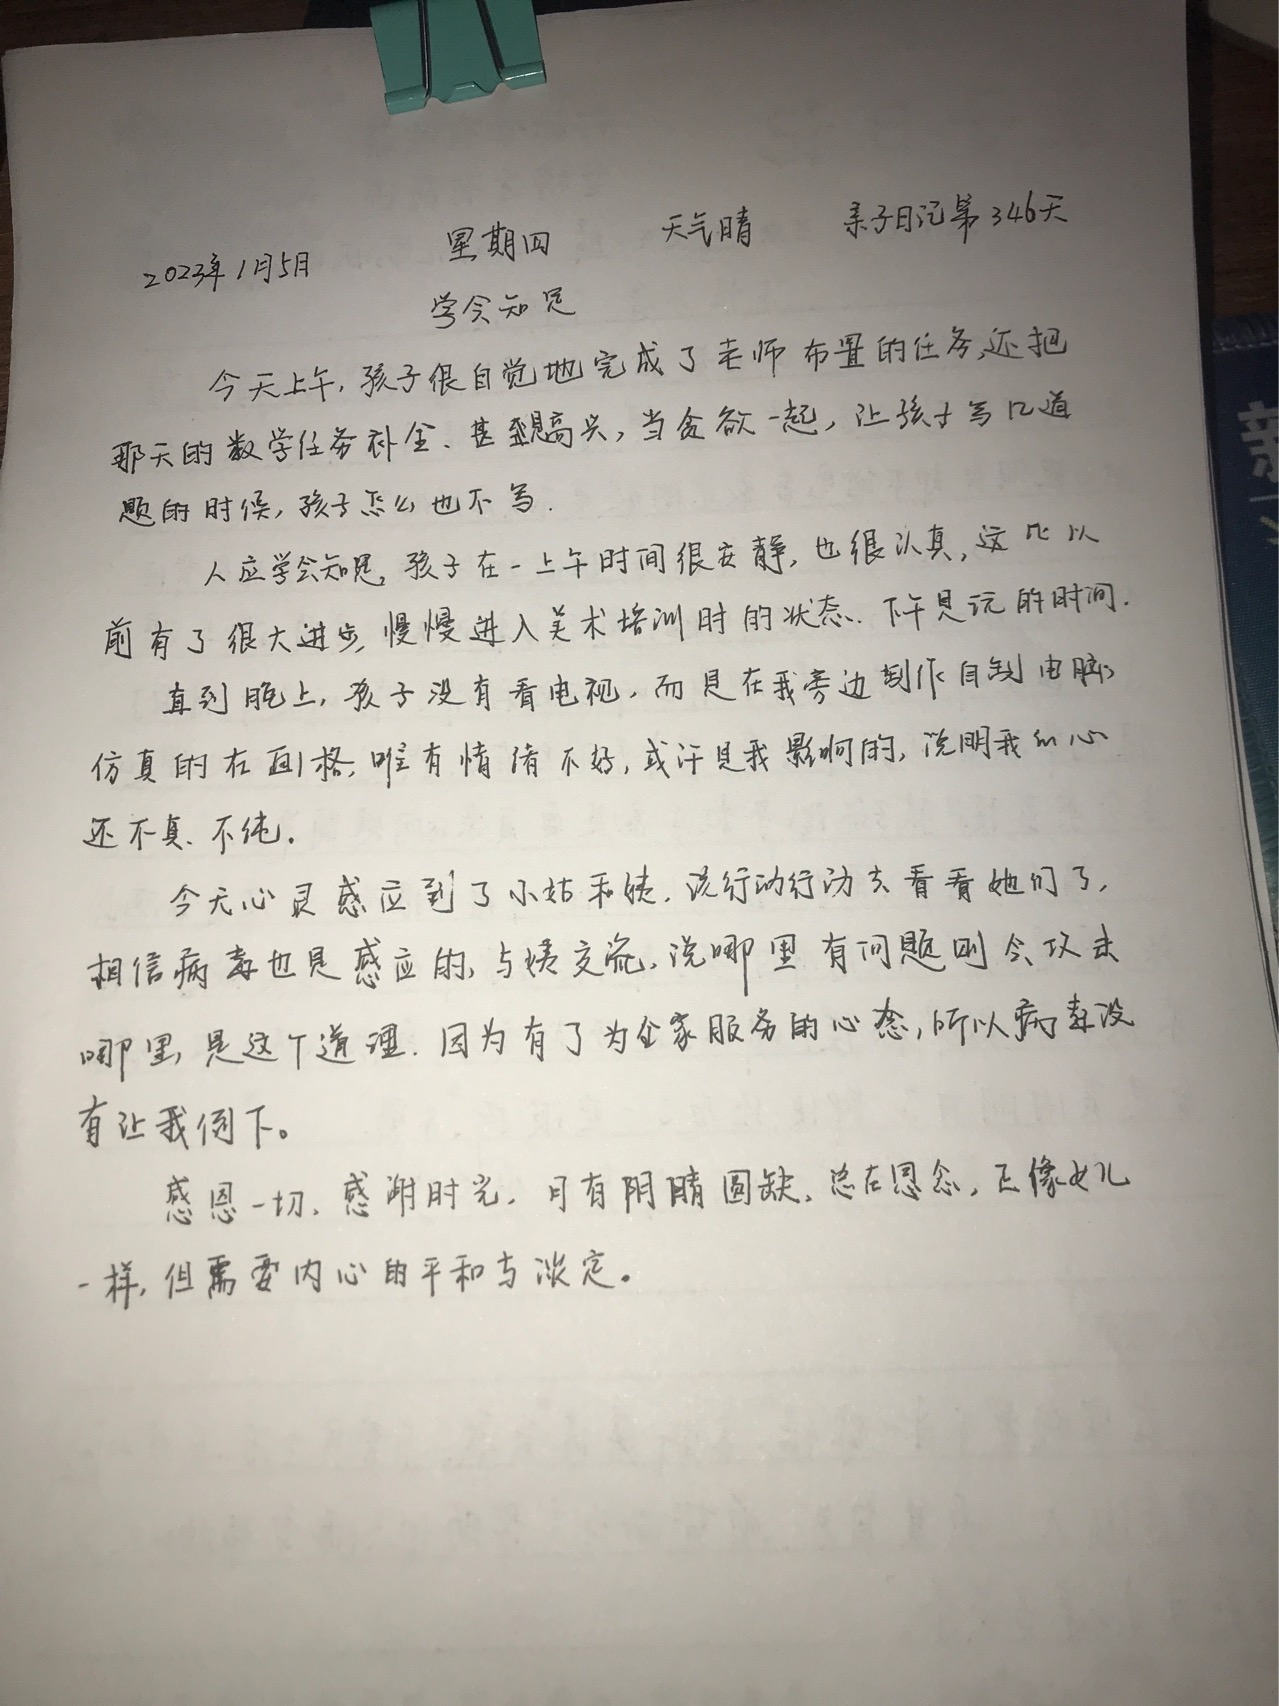 2023年1月5日 星期四 天气晴 亲子日记第346天
学会知足
今天上午,孩子很自觉地完成了老师布置的任务,还把
那天的数学任务补全、甚是高兴,当贪欲一起,让孩子写口道
题的时候,孩子怎么也不写.
人应学会知足,孩子在一上午时间很安静,也很认真,这比以
前有了很大进步,慢慢进入美术培训时的状态.下午是玩的时间.
直到晚上,孩子没有看电视,而是在我旁边制作自制电脑,
仿真的在画格,唯有情绪不好,或许是我影响的,说明我的心
还不真、不纯.
今天心灵感应到了小姑和姨,说行动行动去看看她们了,
相信病毒也是感应的,与姨交流,说哪里有问题则会攻击
哪里,是这个道理.因为有了为全家服务的心态,所以病毒没
有让我倒下。
感恩一切、感谢时光.月有阴晴圆缺、总在恩念,正像女儿
一样,但需要内心的平和与淡定。
新